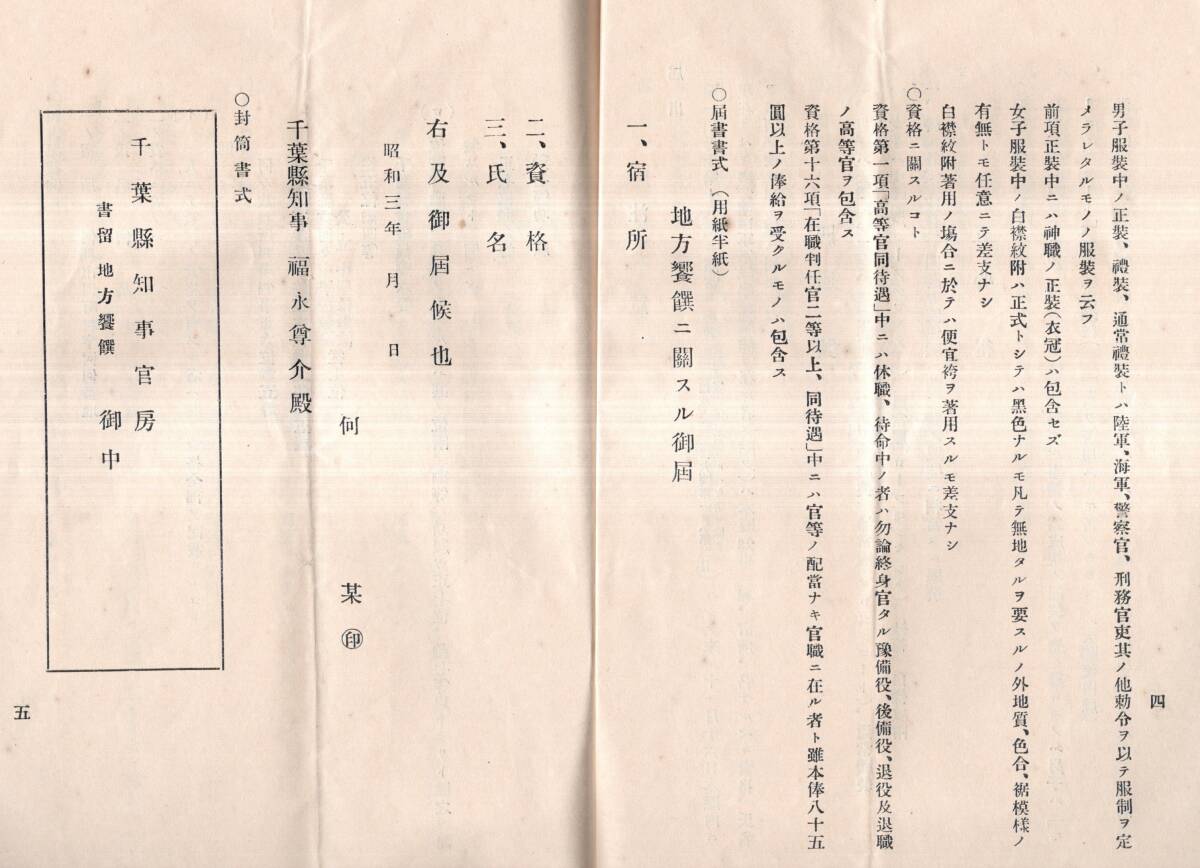 男子服裝中ノ正裝、禮裝、通常禮裝トハ陸軍、海軍、警察官、刑務官吏其ノ他勅令ヲ以テ服制ヲ定
メラレタルモノノ服裝ヲ云フ
前項正裝中ニハ神職ノ正裝(衣冠)ハ包含セズ
女子服裝中ノ白襟紋附ハ正式トシテハ黑色ナルモ凡テ無地タルヲ要スルノ外地質、色合、裾模樣ノ
有無トモ任意ニテ差支ナシ
白襟紋附著用ノ塲合ニ於テハ便宜袴ヲ著用スルモ差支ナシ
〇資格ニ關スルコト
資格第一項「高等官同待遇」中ニハ休職、待命中ノ者ハ勿論終身官タル豫備役、後備役、退役及退職
ノ高等官ヲ包含ス
資格第十六項「在職判任官二等以上、同待遇」中ニハ官等ノ配當ナキ官職ニ在ル者ト雖本俸八十五
圓以上ノ俸給ヲ受クルモノハ包含ス
四
〇屆書書式(用紙半紙)
地方饗饌ニ關スル御屆
一、宿所
二、資格
三、氏名
右及御屆候也
昭和三年 月 日
何 某㊞
千葉縣知事 福永尊介殿
〇封筒書式
千葉縣知事官房
書留 地方饗饌 御中
五